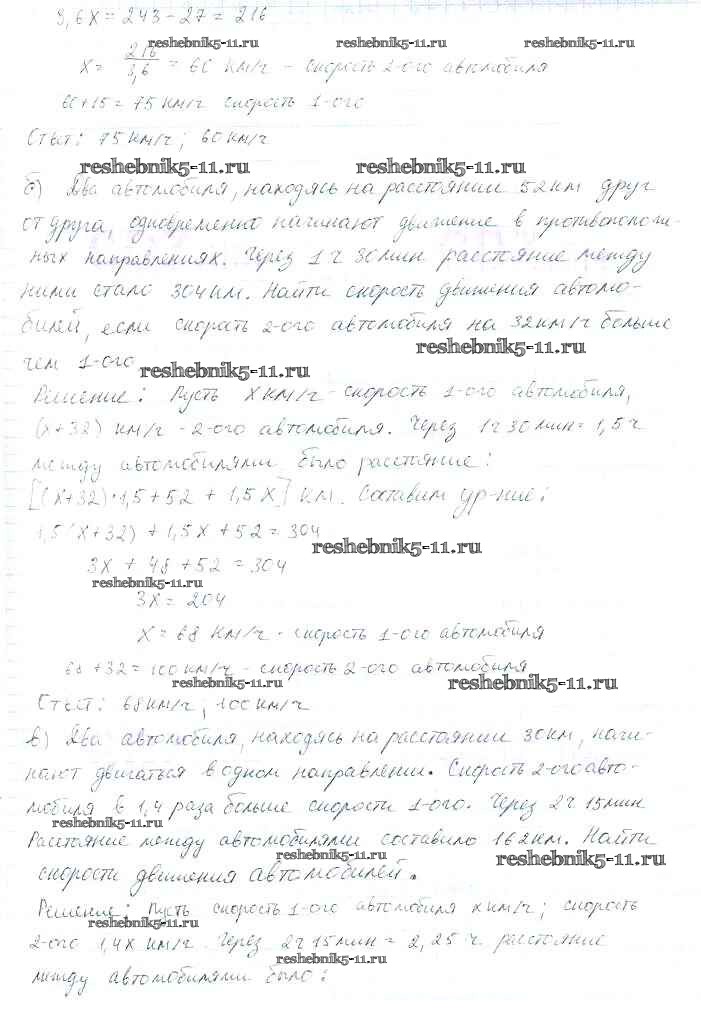 3,6x = 243 - 27 = 216
reshebnik5-11.ru reshebnik5-11.ru
x = 216/3,6 = 60 км/ч - скорость 2-ого автомобиля
60+15 = 75 км/ч скорость 1-ого
Ответ: 75 км/ч; 60 км/ч
reshebnik5-11.ru reshebnik5-11.ru
б) Два автомобиля, находясь на расстоянии 52 км друг
от друга, одновременно начинают движение в противополож-
ных направлениях. Через 1 ч 30 мин расстояние между
ними стало 304 км. Найти скорость движения автомо-
билей, если скорость 2-ого автомобиля на 32 км/ч больше
reshebnik5-11.ru
чем 1-ого
reshebnik5-11.ru
Решение: Пусть x км/ч - скорость 1-ого автомобиля,
(x+32) км/ч - 2-ого автомобиля. Через 1 ч 30 мин = 1,5 ч
между автомобилями было расстояние:
[(x+32)·1,5+52 + 1,5x] км. Составим ур-ние:
1,5(x+32) + 1,5x + 52 = 304
reshebnik5-11.ru
3x + 48 + 52 = 304
reshebnik5-11.ru
3x = 204
x = 68 км/ч - скорость 1-ого автомобиля
68 + 32 = 100 км/ч - скорость 2-ого автомобиля
reshebnik5-11.ru reshebnik5-11.ru
Ответ: 68 км/ч, 100 км/ч
в) Два автомобиля, находясь на расстоянии 30 км, начи-
нают двигаться в одном направлении. Скорость 2-ого авто-
мобиля в 1,4 раза больше скорости 1-ого. Через 2 ч 15 мин
reshebnik5-11.ru
Расстояние между автомобилями составило 162 км. Найти
reshebnik5-11.ru reshebnik5-11.ru
скорости движения автомобилей.
Решение: Пусть скорость 1-ого автомобиля x км/ч; скорость
reshebnik5-11.ru
2-ого 1,4x км/ч. Через 2 ч 15 мин = 2,25 ч. расстояние
reshebnik5-11.ru
между автомобилями было: